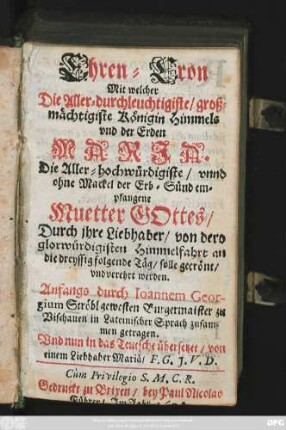 Ehren-Cron
Mit welcher
Die Aller-durchleuchtigiste/ groß-
mächtigiste Königin Himmels
vnd der Erden
MARIA.
Die Aller-hochwürdigiste/ vnnd
ohne Mackel der Erb-Sünd em-
pfangene
Muetter GOttes/
Durch ihre Liebhaber/ von dero
glorwürdigisten Himmelfahrt an
die dreyssig folgende Täg/ solle gecrönt/
vnd verehrt werden.
Anfangs durch Joannem Geor-
gium Ströbl gewesten Burgermaister zu
Vischauen in Lateinischer Sprach zusam-
men getragen.
Und nun in das Teutsche übersetzt/ von
einem Liebhaber Mariä/ F. G. J. V. D.
Cùm Privilegio S. M. C. R.
Gedruckt zu Brixen/ bey Paul Nicolao